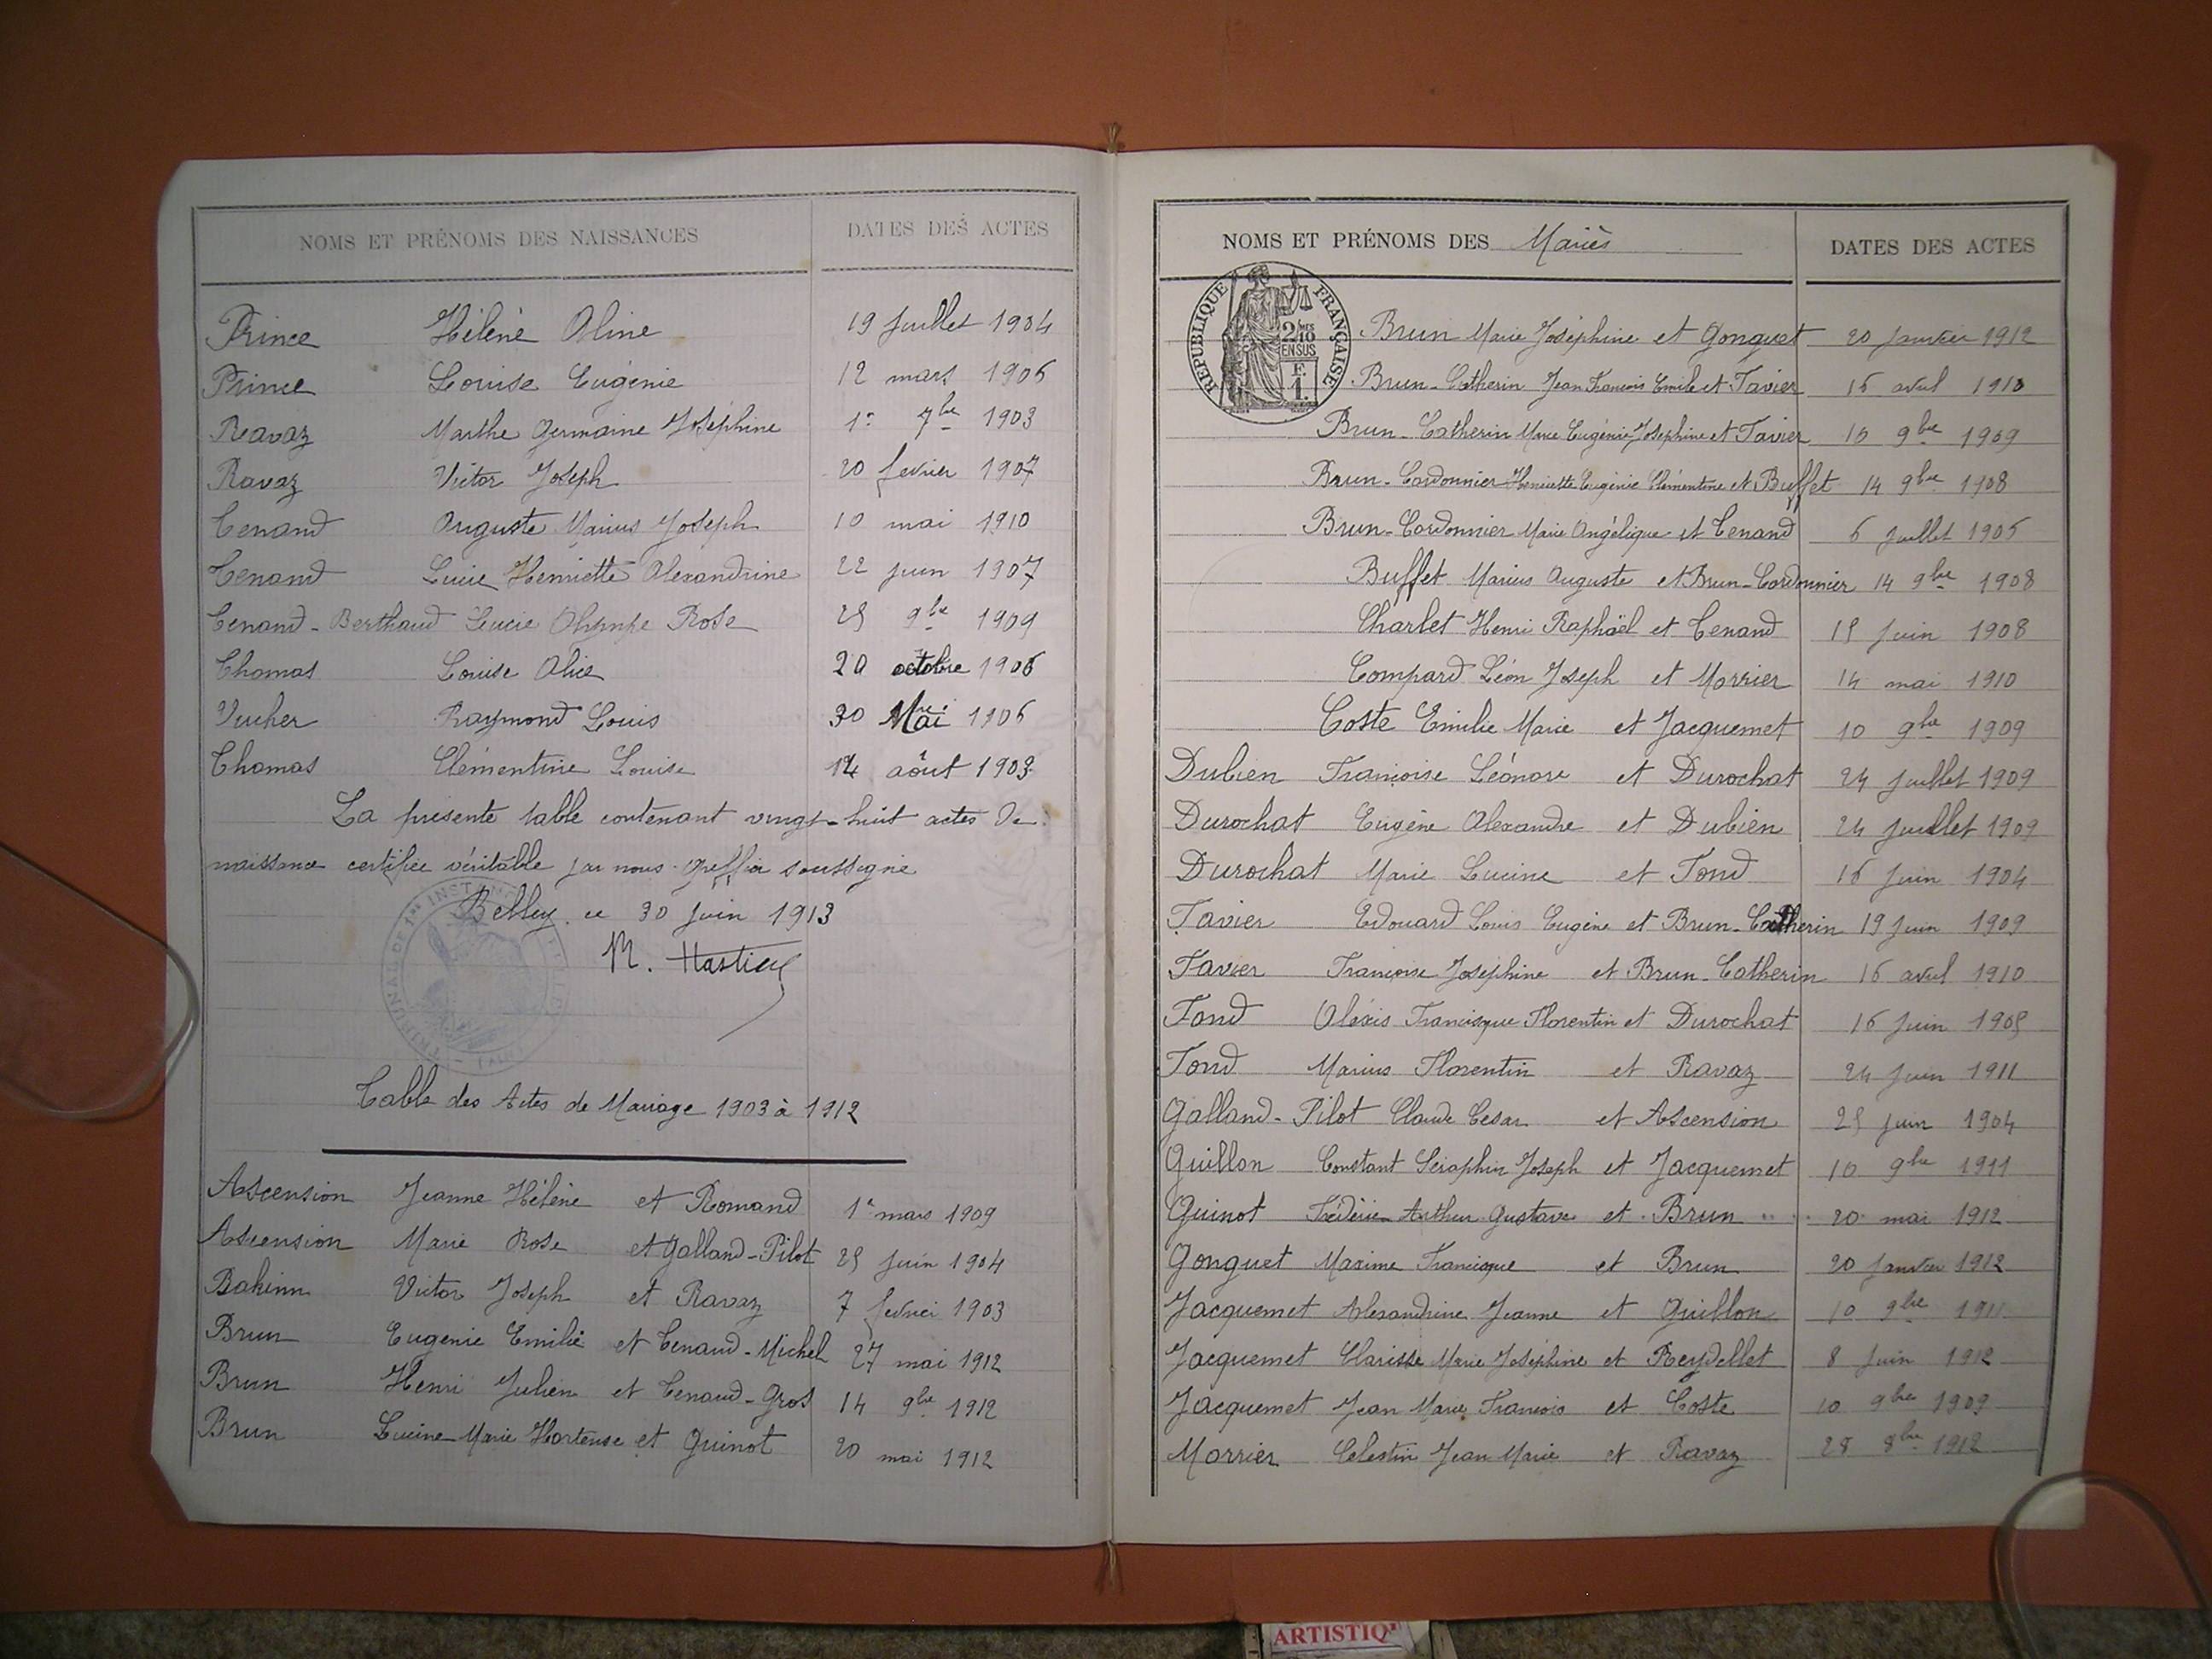 NOMS ET PRÉNOMS DES NAISSANCES DATES DES ACTES
Prince Hélène Aline 19 Juillet 1904
Prince Louise Eugénie 12 mars 1906
Ravaz Marthe Germaine Joséphine 1er 7bre 1903
Ravaz Victor Joseph 20 fevrier 1907
Tenand Auguste Marius Joseph 10 mai 1910
Tenand Lucie Henriette Alexandrine 22 juin 1907
Tenand-Berthaud Lucie Olympe Rose 25 9bre 1909
Thomas Louise Alice 20 octobre 1906
Vucher Raymond Louis 30 Mai 1906
Thomas Clémentine Louise 14 aôut 1903
La présente table contenant vingt-huit actes de
naissance certifiée véritable par nous greffier soussigné
Belley ce 30 Juin 1913
Table des Actes de Mariage 1903 à 1912
Ascension Jeanne Hélène et Romand 1er mars 1909
Ascension Marie Rose et Galland-Pilot 25 Juin 1904
Victor Joseph et Ravaz 7 fevrier 1903
Brun Eugenie Emilie et Tenand-Michel 27 mai 1912
Brun Henri Julien et Tenand-Gros 14 9bre 1912
Brun Lucine Marie Hortense et Guinot 20 mai 1912
NOMS ET PRÉNOMS DES Mariés DATES DES ACTES
RÉPUBLIQUE FRANÇAISE
2/10
EN SUS
F.
1.
Brun Marie Joséphine et Gonguet 20 Janvier 1912
Brun-Catherin Jean François Emile et Favier 16 avril 1910
Brun-Catherin Marie Eugénie Joséphine et Favier 9bre 1909
Brun-Cordonnier Henriette Eugénie Clémentine et Buffet 14 9bre 1908
Brun-Cordonnier Marie Angélique et Tenand 6 Juillet
Buffet Marius Auguste et Brun-Cordonnier 14 9bre 1908
Charlet Henri Raphaël et Tenand Juin 1908
Compard Léon Joseph et Morrier 14 mai 1910
Coste Emilie Marie et Jacquemet 10 9bre 1909
Dubien Françoise Léonore et Durochat 24 Juillet 1909
Durochat Eugène Alexandre et Dubien 24 Juillet 1909
Durochat Marie Lucine et Fond 16 Juin 1904
Favier Edouard Louis Eugène et Brun-Catherin 19 Juin 1909
Favier Françoise Joséphine et Brun-Catherin 16 avril 1910
Fond Alexis Francisque Florentin et Durochat 16 Juin
Fond Marius Florentin et Ravaz 24 Juin 1911
Galland-Pilot Claude Cesar et Ascension 25 Juin 1904
Guillon Constant Séraphin Joseph et Jacquemet 10 9bre 1911
Guinot Frédéric Arthur Gustave et Brun 20 mai 1912
Gonguet Maxime Francisque et Brun 20 Janvier 1912
Jacquemet Alexandrine Jeanne et Guillon 10 9bre 1911
Jacquemet Clarisse Marie Joséphine et Reydellet 8 Juin 1912
Jacquemet Jean Marie François et Coste 10 9bre 1909
Morrier Celestin Jean Marie et Ravaz 28 8bre 1912
ARTISTIQ